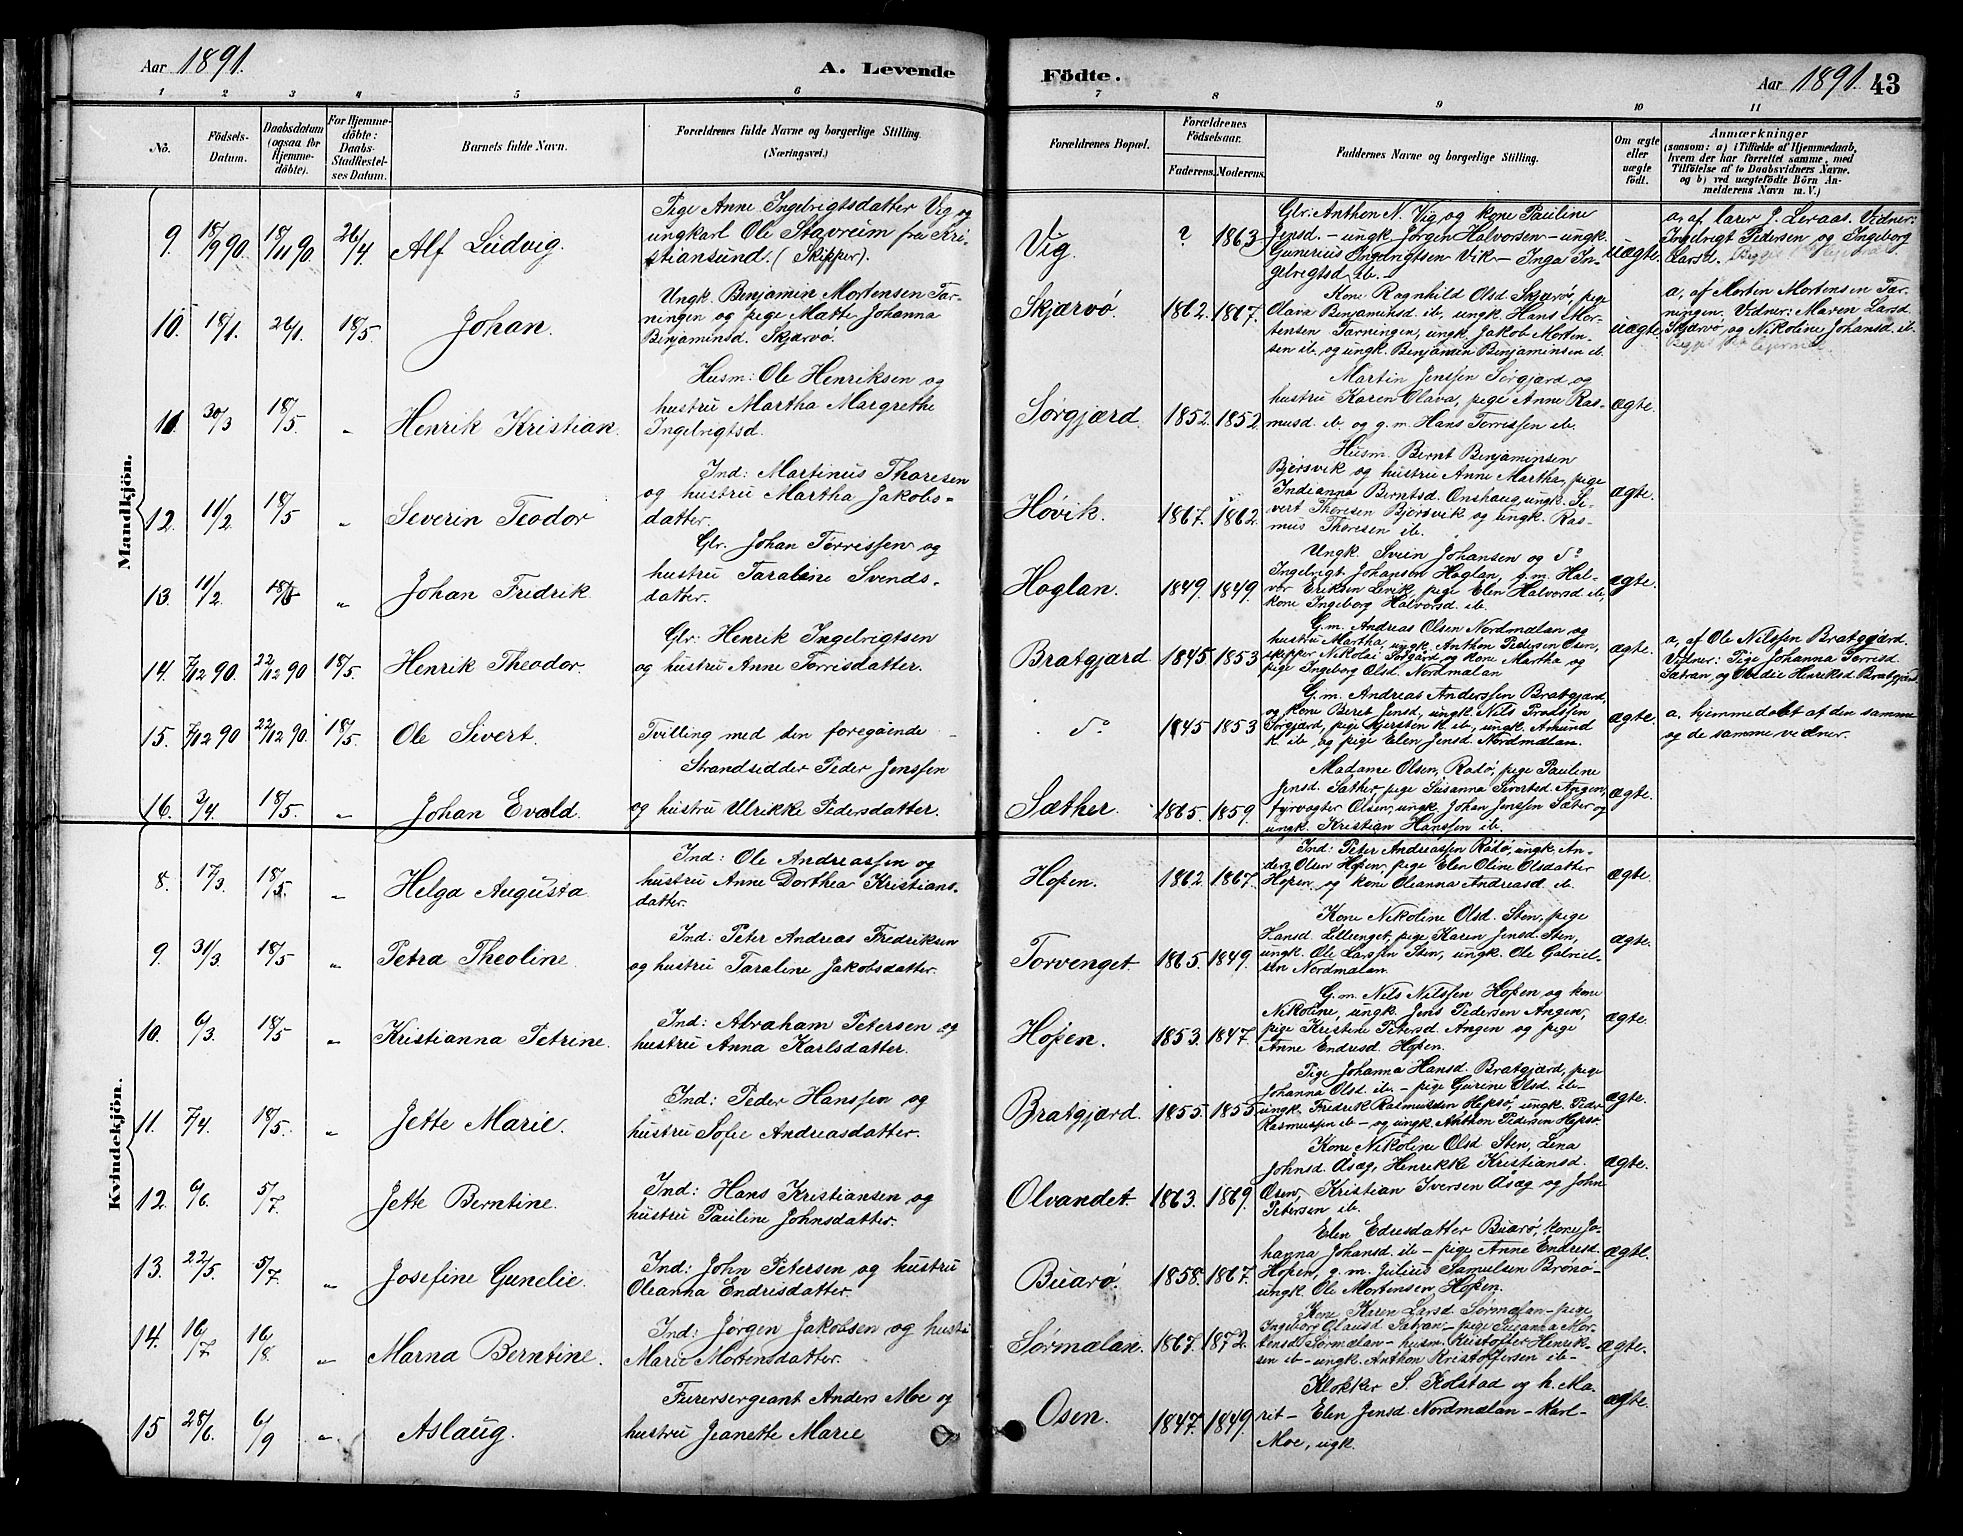 Aar 1891.
A. Levende
Födte.
Aar 1891. 43
1 2 3 4 5 6 7 8 9 10 11
No.
Födsels-
Datum.
Daabsdatum
(ogsaa for
Hjemme-
döbte).
For Hjemme-
döbte:
Daabs-
Stadfæstel-
ses Datum.
Barnets fulde Navn.
Forældrenes fulde Navne og borgerlige Stilling.
(Næringsvei.)
Forældrenes Bopæl.
Forældrenes
Födselsaar.
Faderens. Moderens.
Faddernes Navne og borgerlige Stilling.
Om ægte
eller
uægte
födt.
Anmærkninger
(saasom: a) i Tilfælde af Hjemmedaab,
hvem der har forrettet samme, med
Tilföielse af to Daabsvidners Navne,
og b) ved uægtefödte Börn An-
melderens Navn m. V.)
Mandkjön.
9. 18/9 90. 18/11 90 26/4 Alf Ludvig.
Pige Anne Ingebrigtsdatter Vig og
ungkarl Ole Stavreim fra Kri-
stiansund. (Skipper).
Vig. ? 1863
Glr: Anthon N. Vig og kone Pauline
Jensd. - ungk Jörgen Halvorsen - ungk.
Gunerius Ingebrigtsen Vik - Inga In-
gebrigtsd ib.
uægte.
a, af lærer J. Leraas. Vidner:
Ingebrigt Pedersen og Ingeborg
Larsd.
10. 18/1. 26/1. 18/5. Johan.
Ungk. Benjamin Mortensen Tar-
ningen og pige Matte Johanna
Benjaminsd. Skjærvø.
Skjærvø. 1862. 1867.
Kone Ragnhild Olsd Skjærvø, pige
Olava Benjaminsd ib, ungk Hans Mor-
tensen Tarningen, ungk. Jakob Morten-
sen ib, og ungk. Benjamin Benjaminsen ib.
uægte.
a, af Morten Mortensen Tar-
ningen. Vidner: Maren Larsd
Skjærvø, og Nikoline Johansd. ib.
11. 30/3 18/5. " Henrik Kristian.
Husm: Ole Henriksen og
hustru Martha Margrethe
Ingebrigtsd.
Sørgjærd. 1852. 1852.
Martin Jenssen Sørgjærd og
hustru Karen Olava, pige Anne Ras-
musd. ib. og g.m. Hans Torrissen ib.
ægte.
12. 11/2. 18/5 " Severin Teodor
Ind: Martinus Thoresen
og hustru Martha Jakobs-
datter.
Høvik. 1867. 1862.
Husm. Bernt Benjaminsen
Bjørsvik og hustru Anne Martha, pige
Indianna Berntsd. Onshaug, ungk. Si-
vert Thoresen Bjørsvik og ungk. Ras-
mus Thoresen ib.
ægte.
13. 11/2. 18/5 " Johan Fredrik.
Glr. Johan Torrissen og
hustru Taraline Svends-
datter.
Hoglan. 1849. 1849.
Ungk. Svein Johansen og do
Ingebrigt Johansen Hoglan, g.m. Hal-
vor Eriksen Levik, pige Elen Halvorsd ib,
kone Ingeborg Halvorsd ib.
ægte.
14. 7/12 90. 22/12 90 18/5. Henrik Theodor.
Glr: Henrik Ingebrigtsen
og hustru Anne Torrisdatter.
Bratgjærd 1845 1853
G.m. Andreas Olsen Nordmælan og
hustru Martha, ungk. Anthon Pedersen Osen,
skipper Nikolai Sørgård og kone Martha og
pige Ingeborg Olsd. Nordmælan
ægte.
a, af Ole Nilssen Bratgjærd.
Vidner: Pige Johanna Torrisd.
Sætran, og Obedie Henriksd. Bratgjærd
15. 7/12 90 22/12 90. 18/5. Ole Sivert.
Tvilling med den foregående
do 1845 1853
G.m. Andreas Anderssen Bratgjærd,
og kone Beret Jensd., ungk. Nils
Sørgjærd, pige Kjersten K. ib, ungk. Amund
K. ib, og pige Elen Jensd. Nordmælan.
ægte.
a. hjemmedøbt af den samme
og de samme vidner.
16. 3/4. 18/5. " Johan Evald.
Strandsidder Peder Jenssen
og hustru Ulrikke Pedersdatter.
Sæther. 1865. 1859.
Madame Olsen, Radø, pige Pauline
Jensd. Sæther, pige Susanna Sivertsd Angen,
fyrvogter Olsen, ungk. Johan Jenssen Sæter og
ungk. Kristian Hanssen ib.
ægte.
Kvindekjön.
8. 17/3. 18/5. " Helga Augusta.
Ind: Ole Andreassen og
hustru Anne Dorthea Kristians-
datter.
Hopen. 1862. 1867.
Ind: Peter Andreassen Radø, ungk. An-
ders Olsen Hopen, pige Elen Oline Olsdatter
Hopen, og kone Oleanna Andreasd ib.
ægte.
9. 31/3. 18/5 " Petra Theoline
Ind: Peter Andreas Fredriksen
og hustru Taraline Jakobsdatter.
Torvenget. 1865. 1849.
Kone Nikoline Olsd. Sten, pige
Hansd. Lillenget, pige Karen Jensd. Sten,
ungk. Ole Larssen Sten, ungk. Ole Gabriel-
sen Nordmælan.
ægte.
10. 6/3. 18/5 " Kristianna Petrine.
Ind: Abraham Petersen og
hustru Anna Karlsdatter.
Hopen. 1853. 1847.
G.m. Nils Nilssen Hopen og kone
Nikoline, ungk. Jens Pedersen Angen,
pige Kristine Petersd. Angen og pige
Anne Endresd. Hopen.
ægte.
11. 7/4. 18/5. " Jette Marie.
Ind: Peder Hanssen og
hustru Sofie Andreasdatter.
Bratgjærd. 1855. 1855.
Pige Johanna Hansd. Bratgjærd, pige
Johanna Olsd ib. - pige Gurine Olsd. ib-
ungk. Fredrik Rasmussen Hepsø, ungk. Peder
Rasmussen ib - og ungk. Anthon Pedersen Hepsø.
ægte.
12. 6/6. 5/7. Jette Berntine.
Ind: Hans Kristiansen og
hustru Pauline Johnsdatter.
Olvandet. 1863. 1869.
Kone Nikoline Olsd. Sten, Lena
Johnsd. Åsag, Henrikke Kristiansd.
Osen, Kristian Iversen Åsag og John
Petersen ib.
ægte.
13. 22/5. 5/7. " Josefine Gunelie.
Ind: John Petersen og hustru
Oleanna Endrisdatter.
Buarø. 1858. 1867.
Elen Edrisdatter Buarø, kone Jo-
hanna Johansd. ib - pige Anne Endresd.
Hopen, g.m. Julius Samulsen Brønø-
ungk. Ole Mortensen Hopen.
ægte.
14. 16/7 16/8. " Marna Berntine.
Ind: Jørgen Jakobsen og hustru
Marie Mortensdatter.
Sørmælan. 1867. 1872.
Kone Karen Larsd. Sørmælan - pige
Ingeborg Olausd Sætran - pige Susanna Mor-
tensd Sørmælan - husm. Kristoffer Henrik-
sen ib - ungk. Anthon Kristoffersen ib-
ægte.
15 28/6. 6/9 " Aslaug.
Furersergeant Anders Moe og
hustru Jeanette Marie
Osen. 1847. 1849.
Klokker S. Kolstad og h. Ma-
rit - Elen Jensd. Nordmælan - Karl
Moe, ugk.
ægte.